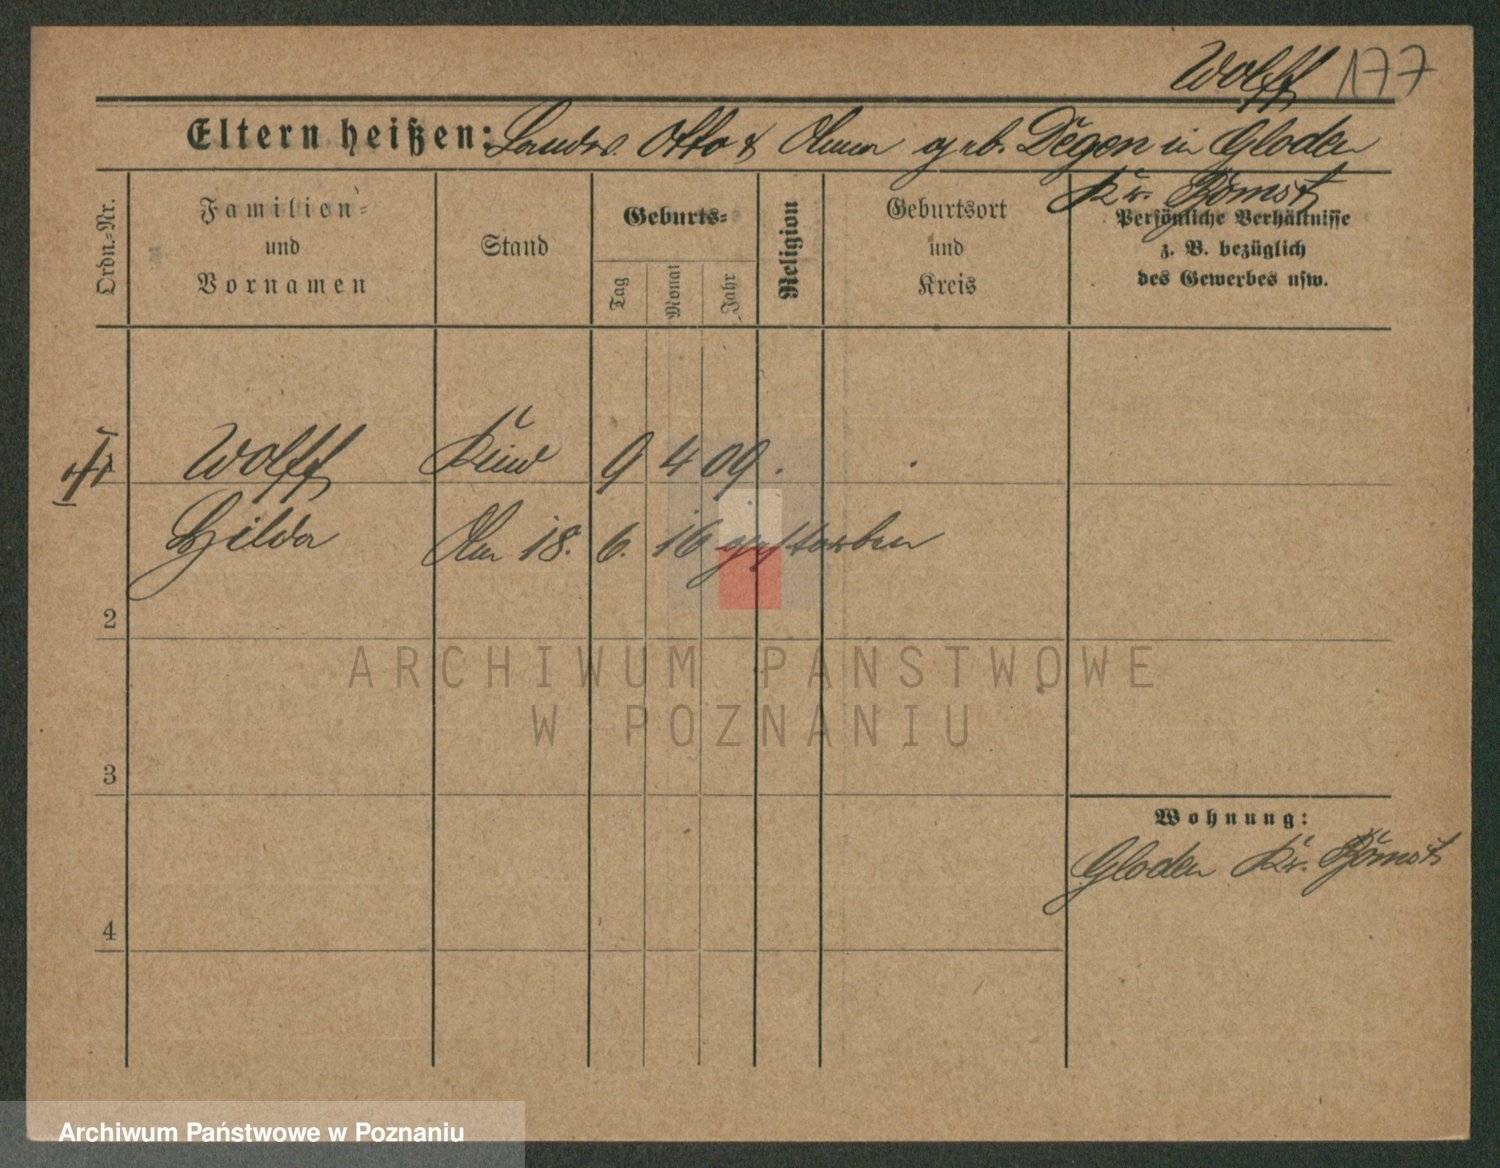 Wolff 177
Eltern heißen: Landw. Otto & Anna geb. Degen in Gloden
Kr. Bomst
Ordn.-Nr.
Familien-
und
Vornamen
Stand
Geburts-
Tag
Monat
Jahr
Religion
Geburtsort
und
Kreis
Persönliche Verhältnisse
z. B. bezüglich
des Gewerbes usw.
Wolff Kind 9 4 09
Hilda Am 18. 6. 16 gestorben
2
ARCHIWUM PAŃSTWOWE
W POZNANIU
3
Wohnung:
Gloden Kr. Bomst
4
Archiwum Państwowe w Poznaniu